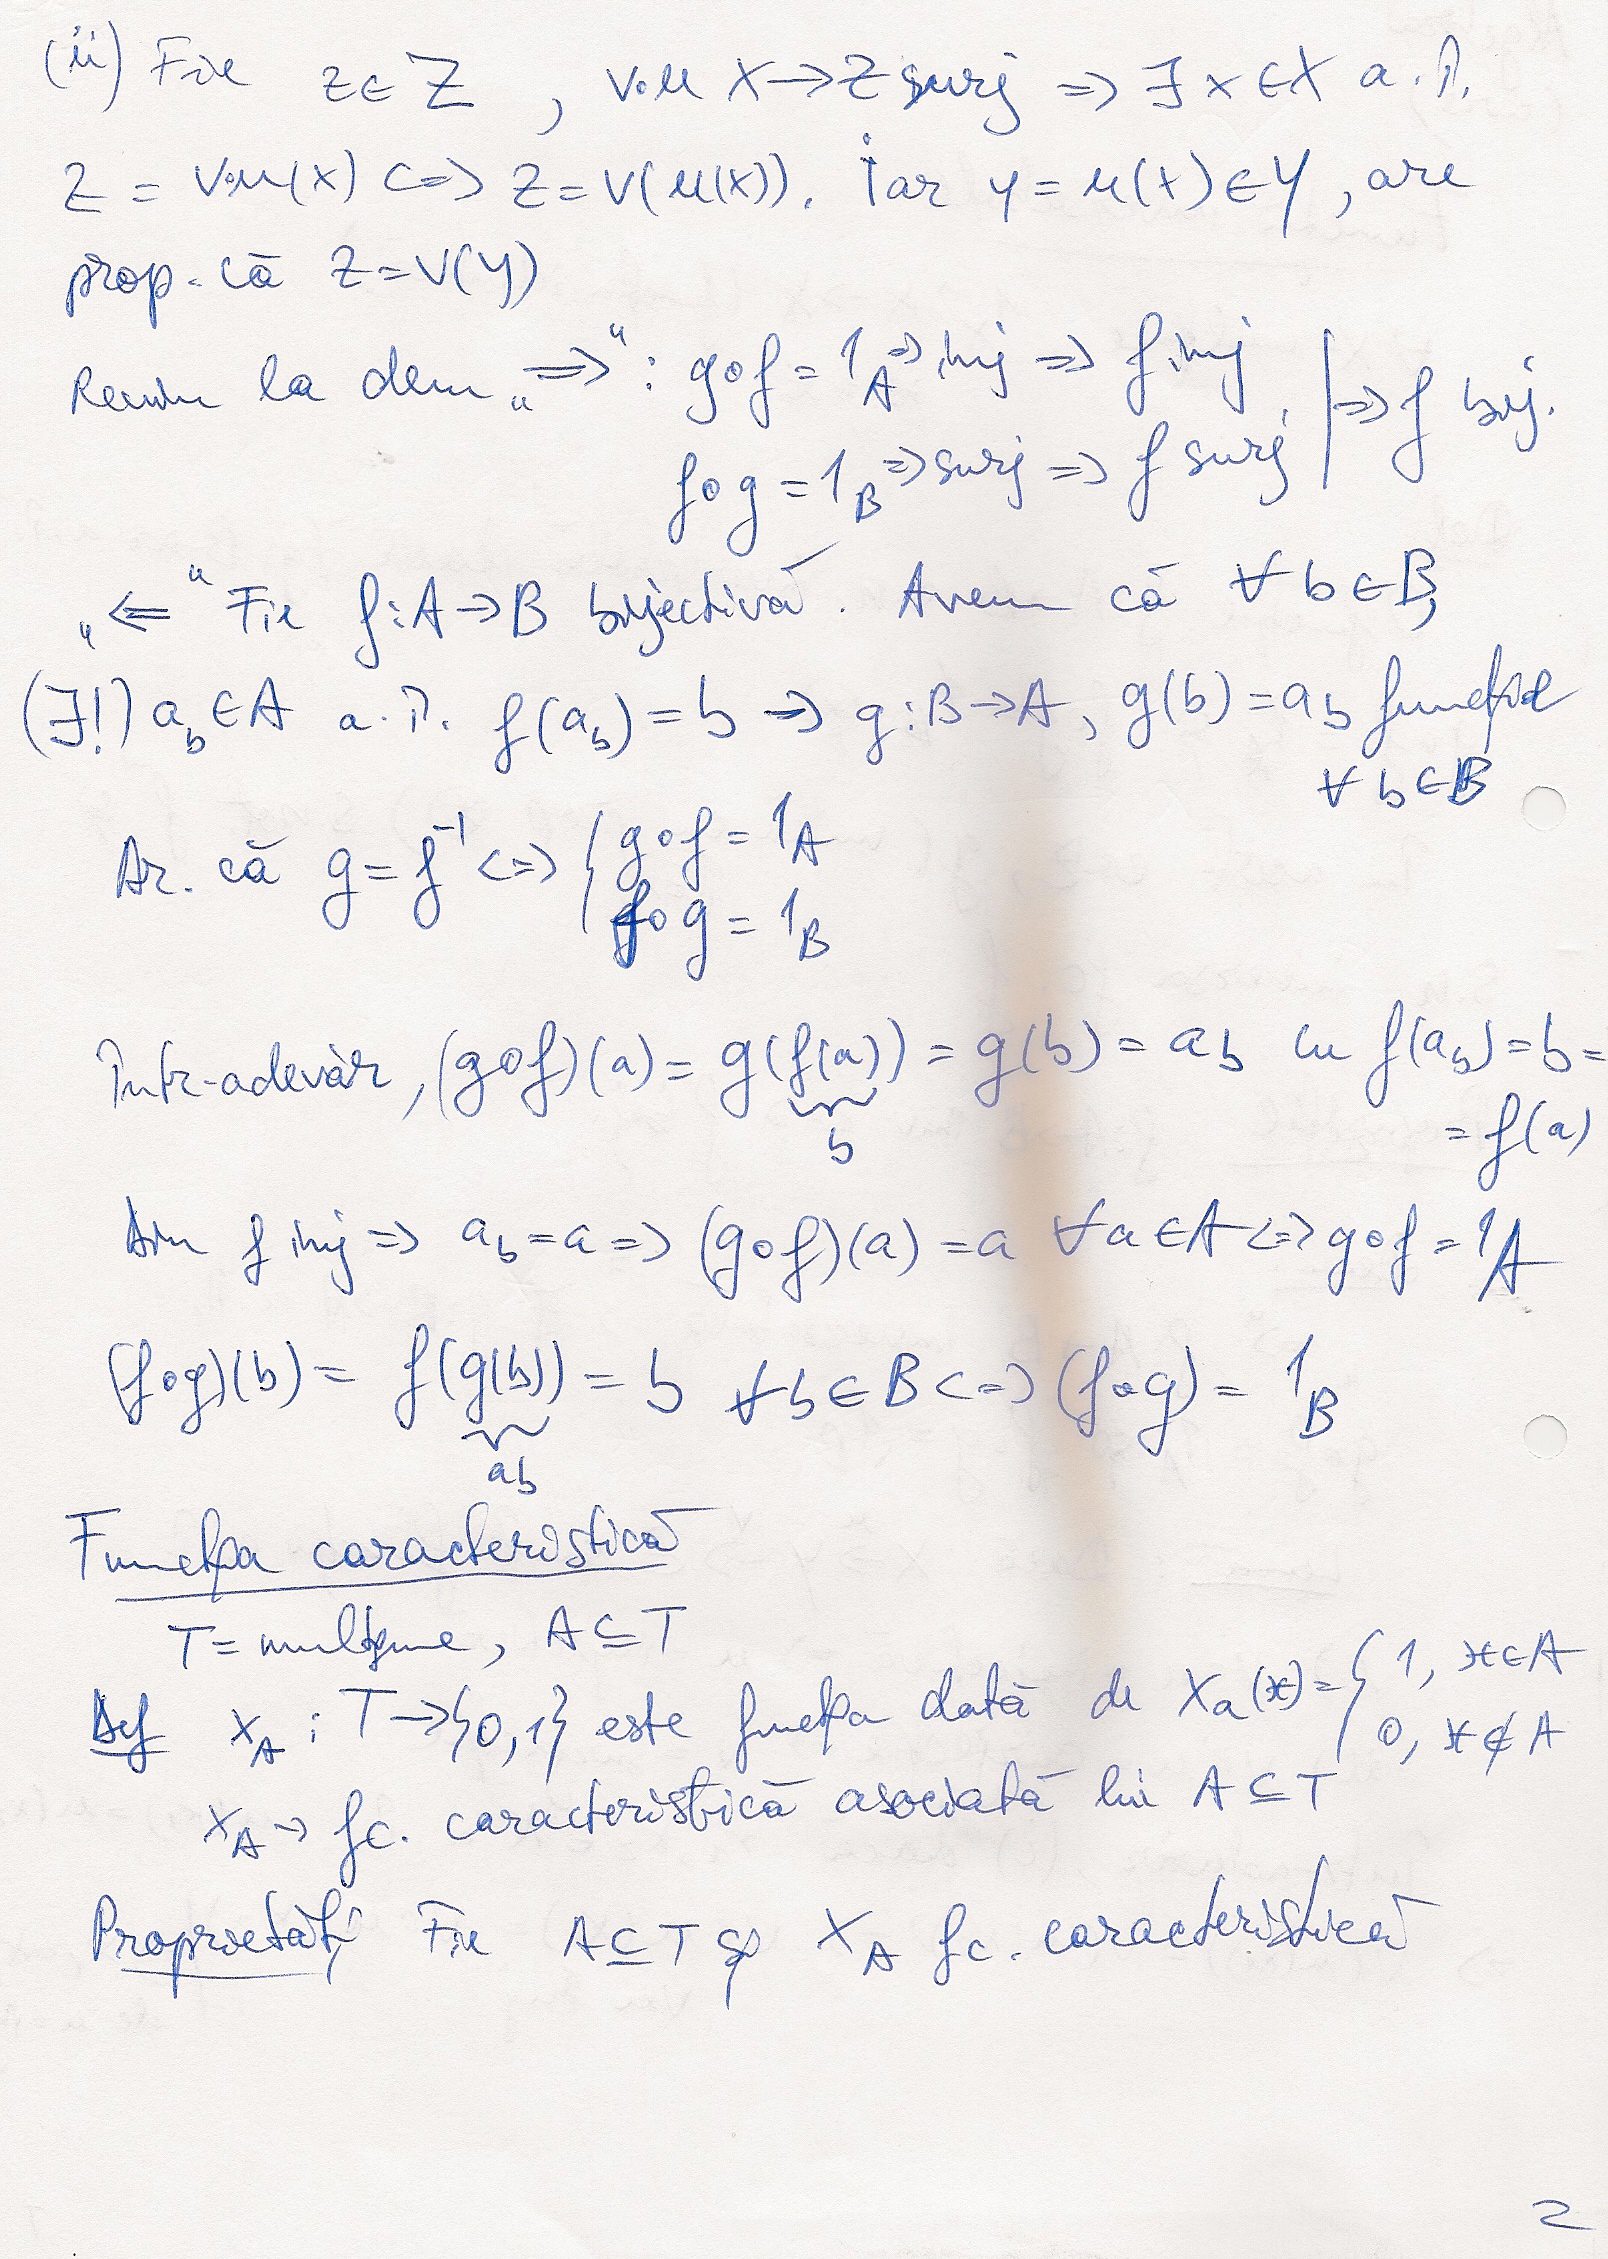 (ii) Fie z∈Z, v∘u X→Z surj => ∃ x∈X a.î.
z = v∘u(x) <=> z = v(u(x)). Iar y = u(x)∈Y, are
prop. că z = v(y)
Revin la dem „=>“: g∘f = 1_A => inj => f inj
f∘g = 1_B => surj => f surj | => f bij.
„<=“ Fie f: A→B bijectivă. Avem că ∀ b∈B,
(∃!) a_b∈A a.î. f(a_b) = b → g: B→A, g(b) = a_b funcție
∀ b∈B
Ar. că g = f^{-1} <=> { g∘f = 1_A
f∘g = 1_B
Într-adevăr, (g∘f)(a) = g(f(a)) = g(b) = a_b cu f(a_b) = b =
b
= f(a)
Din f inj => a_b = a => (g∘f)(a) = a ∀a∈A <=> g∘f = 1_A
(f∘g)(b) = f(g(b)) = b ∀b∈B <=> (f∘g) = 1_B
a_b
Funcția caracteristică
T = mulțime, A⊆T
Def χ_A : T→{0,1} este funcția dată de χ_a(x) = { 1, x∈A
0, x∉A
χ_A → fc. caracteristică asociată lui A⊆T
Proprietăți Fie A⊆T și χ_A fc. caracteristică
2